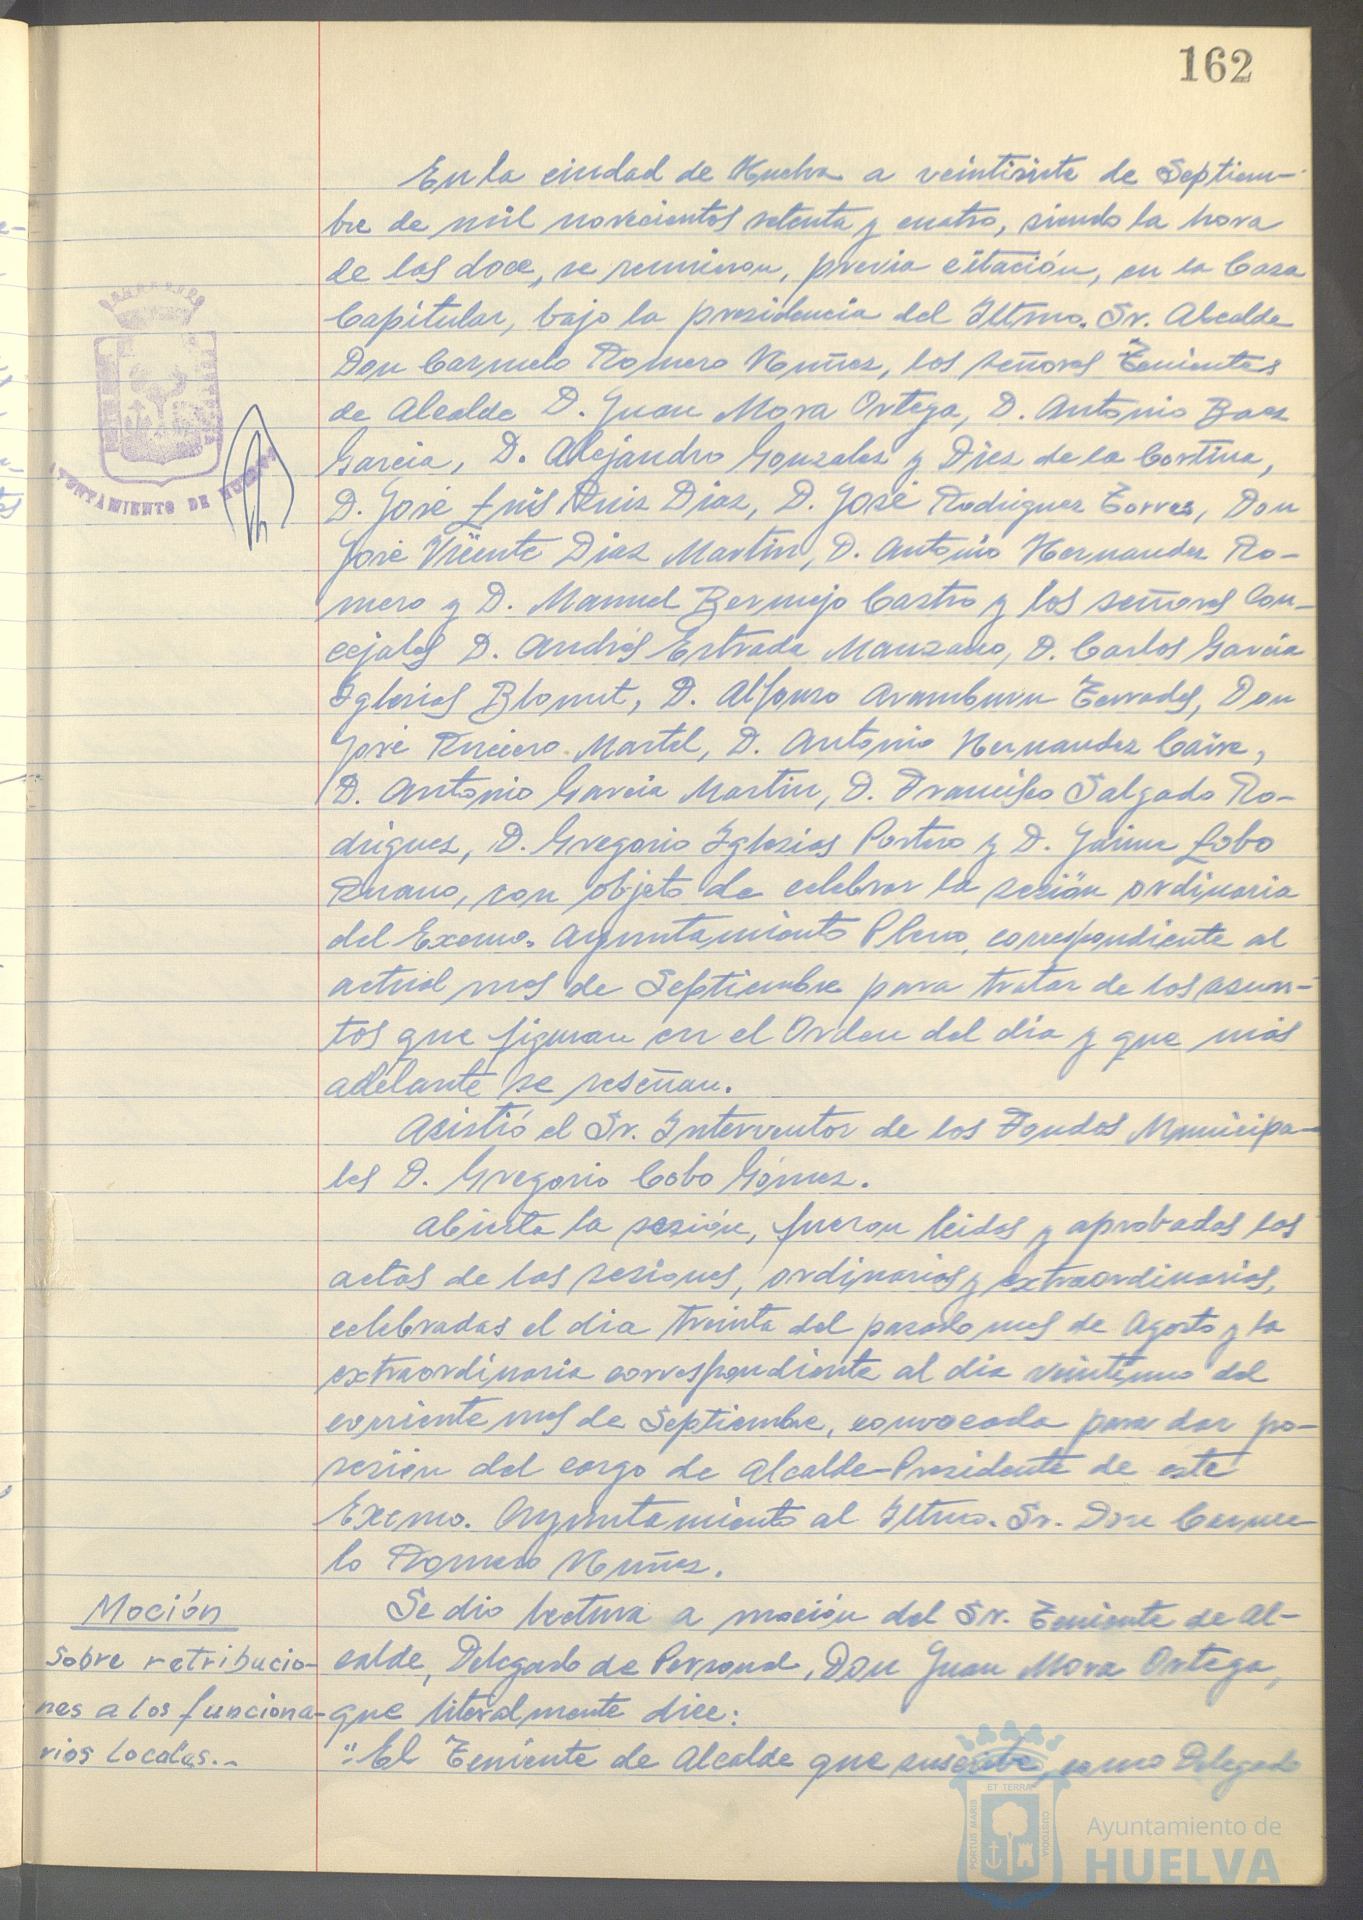 162
En la ciudad de Huelva a veintisiete de Septiem-
bre de mil novecientos setenta y cuatro, siendo la hora
de las doce, se reunieron, previa citación, en la Casa
Capitular, bajo la presidencia del Iltmo. Sr. Alcalde
Don Carmelo Romero Nuñez, los señores Tenientes
de Alcalde D. Juan Mora Ortega, D. Antonio Baez
Garcia, D. Alejandro Gonzalez y Diez de la Cortina,
D. José Luis Ruiz Diaz, D. José Rodriguez Torres, Don
José Vicente Diaz Martin, D. Antonio Hernandez Ro-
mero y D. Manuel Bermejo Castro y los señores Con-
cejales D. Andrés Estrada Manzano, D. Carlos Garcia
Iglesias Blomut, D. Alfonso Aramburu Terrades, Don
José Martel, D. Antonio Hernandez
D. Antonio Garcia Martin, D. Francisco Salgado Ro-
driguez, D. Gregorio Iglesias Portero y D. Jaime Lobo
Ruano, con objeto de celebrar la sesión ordinaria
del Excmo. Ayuntamiento Pleno, correspondiente al
actual mes de Septiembre para tratar de los asun-
tos que figuran en el Orden del dia y que mas
adelante se reseñan.
Asistió el Sr. Interventor de los Fondos Municipa-
les D. Gregorio Cobo Gómez.
Abierta la sesión, fueron leidas y aprobadas las
actas de las sesiones, ordinarias y extraordinarias,
celebradas el dia treinta del pasado mes de Agosto y la
extraordinaria correspondiente al dia veintiuno del
corriente mes de Septiembre, convocada para dar po-
sesión del cargo de Alcalde-Presidente de este
Excmo. Ayuntamiento al Iltmo. Sr. Don Carme-
lo Romero Nuñez.
Moción
sobre retribucio-
nes a los funciona-
rios locales.-
Se dio lectura a moción del Sr. Teniente de Al-
calde, Delegado de Personal, Don Juan Mora Ortega,
que literalmente dice:
"El Teniente de Alcalde que suscribe, como Delegado
AYUNTAMIENTO DE HUELVA
PORTUS MARIS ET TERRAE CUSTODIA
Ayuntamiento de
HUELVA